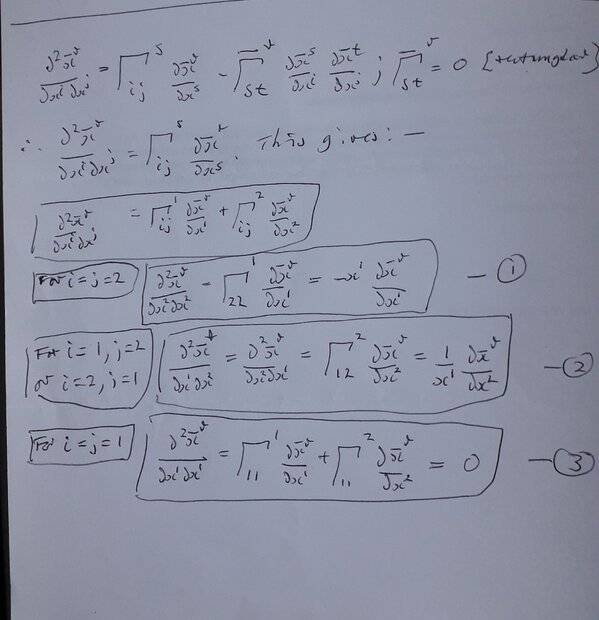 ∂²x̄ʳ/∂xⁱ∂xʲ = Γᵢⱼˢ ∂x̄ʳ/∂xˢ - Γ̄ₛₜʳ ∂x̄ˢ/∂xⁱ ∂x̄ᵗ/∂xʲ ; Γ̄ₛₜʳ = 0 [rectangular]
∴ ∂²x̄ʳ/∂xⁱ∂xʲ = Γᵢⱼˢ ∂x̄ʳ/∂xˢ. This gives: —
∂²x̄ʳ/∂xⁱ∂xʲ = Γᵢⱼ¹ ∂x̄ʳ/∂x¹ + Γᵢⱼ² ∂x̄ʳ/∂x²
For i = j = 2 ∂²x̄ʳ/∂x²∂x² = Γ₂₂¹ ∂x̄ʳ/∂x¹ = -x¹ ∂x̄ʳ/∂x¹ — ①
For i = 1, j = 2
or i = 2, j = 1 ∂²x̄ʳ/∂x¹∂x² = ∂²x̄ʳ/∂x²∂x¹ = Γ₁₂² ∂x̄ʳ/∂x² = 1/x¹ ∂x̄ʳ/∂x² — ②
For i = j = 1 ∂²x̄ʳ/∂x¹∂x¹ = Γ₁₁¹ ∂x̄ʳ/∂x¹ + Γ₁₁² ∂x̄ʳ/∂x² = 0 — ③